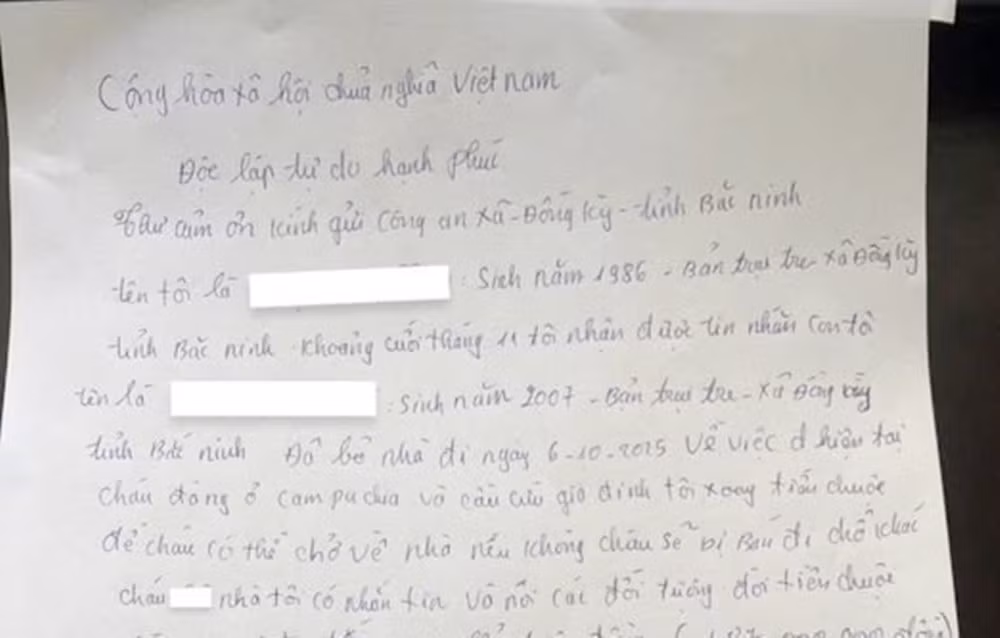 Cộng hòa xã hội chủ nghĩa Việt nam
Độc lập tự do hạnh phúc
Thư cảm ơn kính gửi công an xã - Đồng kỳ - tỉnh Bắc ninh
tên tôi là : Sinh năm 1986 - Bản trại tre - xã Đồng kỳ
tỉnh Bắc ninh khoảng cuối tháng 11 tôi nhận được tin nhắn con tô
tên là : Sinh năm 2007 - Bản trại tre - xã Đồng kỳ
tỉnh Bắc ninh Đã bỏ nhà đi ngày 6-10-2025 về việc d hiện tại
cháu đang ở cam pu chia và cầu cứu gia đình tôi xoay tiền chuộc
để cháu có thể chở về nhà nếu không cháu sẽ bị Bán đi chỗ khác
cháu nhà tôi có nhắn tin và nói các đối tượng đòi tiền chuộc